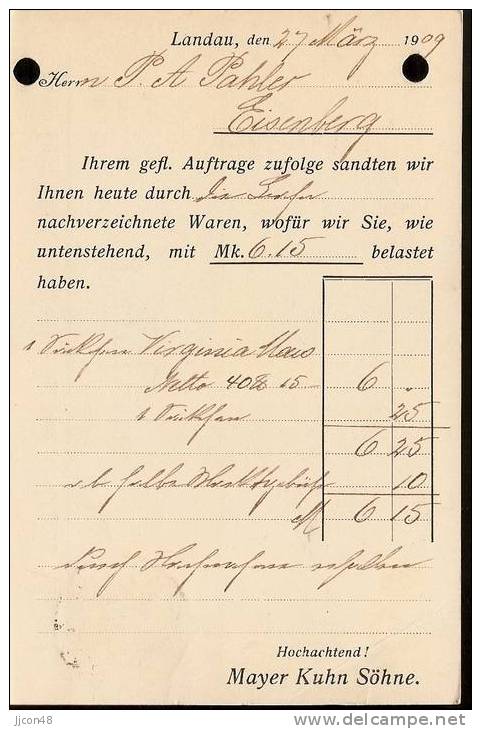 Landau, den 27 März 1909
Herrn P. A. Pahler
Eisenberg
Ihrem gefl. Auftrage zufolge sandten wir
Ihnen heute durch die
nachverzeichnete Waren, wofür wir Sie, wie
untenstehend, mit Mk. 6.15 belastet
haben.
1 Virginia Mais
Netto 40 15 – 6 "
1 25
6 25
ab halbe 10
M 6 15
durch Nachnahme erhoben
Hochachtend!
Mayer Kuhn Söhne.
jjcon48
www.delcampe.net